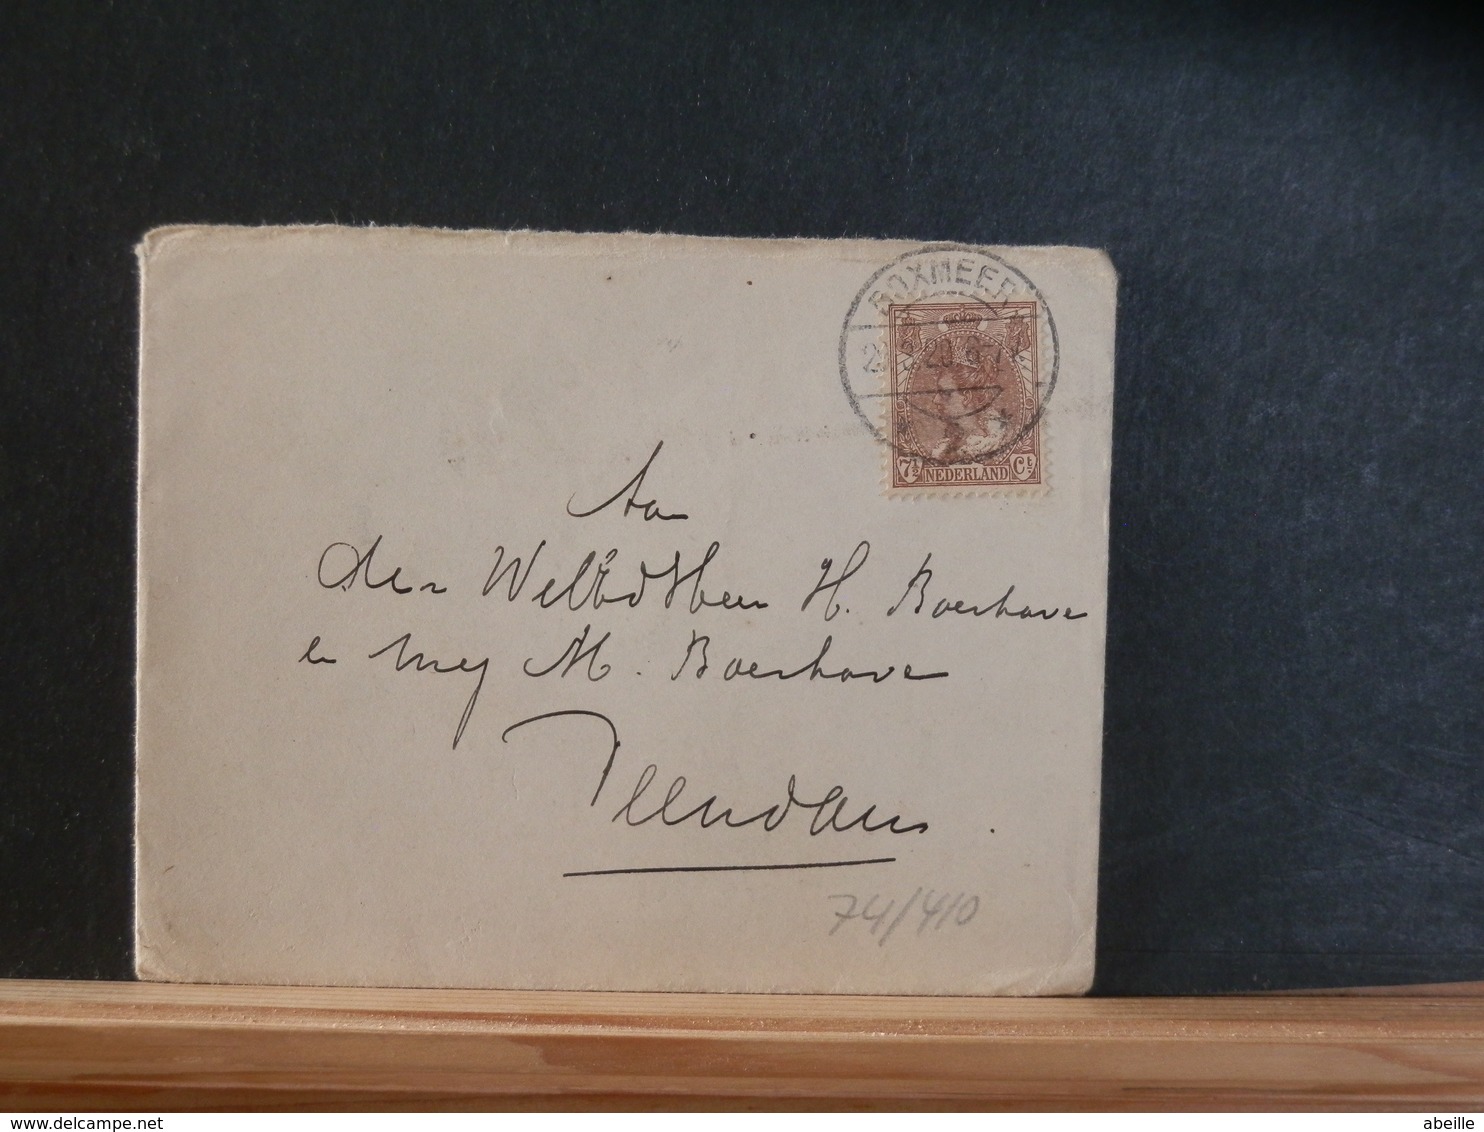 BOXMEER
20 6-7
7½ NEDERLAND Ct
Aan
den WelEd Heer H. Boerhave
en Mej M. Boerhave
Veendam.
74/410
delcampe.net
abeille